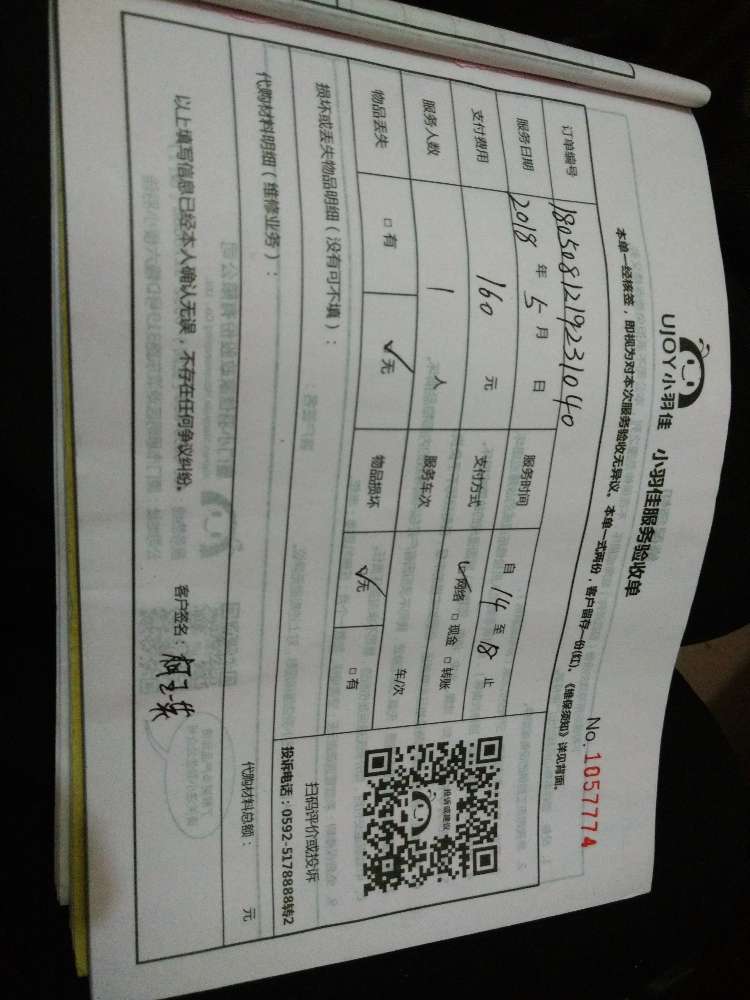 UJOY小羽佳 小羽佳服务验收单
No. 1057774
本单一经核签，即视为对本次服务验收无异议。本单一式两份，客户留存一份(红)。《维保须知》详见背面。
订单编号 1805081219231040
服务日期 2018 年 5 月 日 服务时间 自 14 至 18 止
支付费用 160 元 支付方式 ☑网络 □现金 □转账
服务人数 1 人 服务车次 车/次
物品丢失 □有 ☑无 物品损坏 ☑无 □有
损坏或丢失物品明细（没有可不填）：
投诉或建议
扫码评价或投诉
投诉电话：0592-5178888转2
代购材料明细（维修业务）：
代购材料总额： 元
以上填写信息已经本人确认无误，不存在任何争议纠纷。 客户签名：